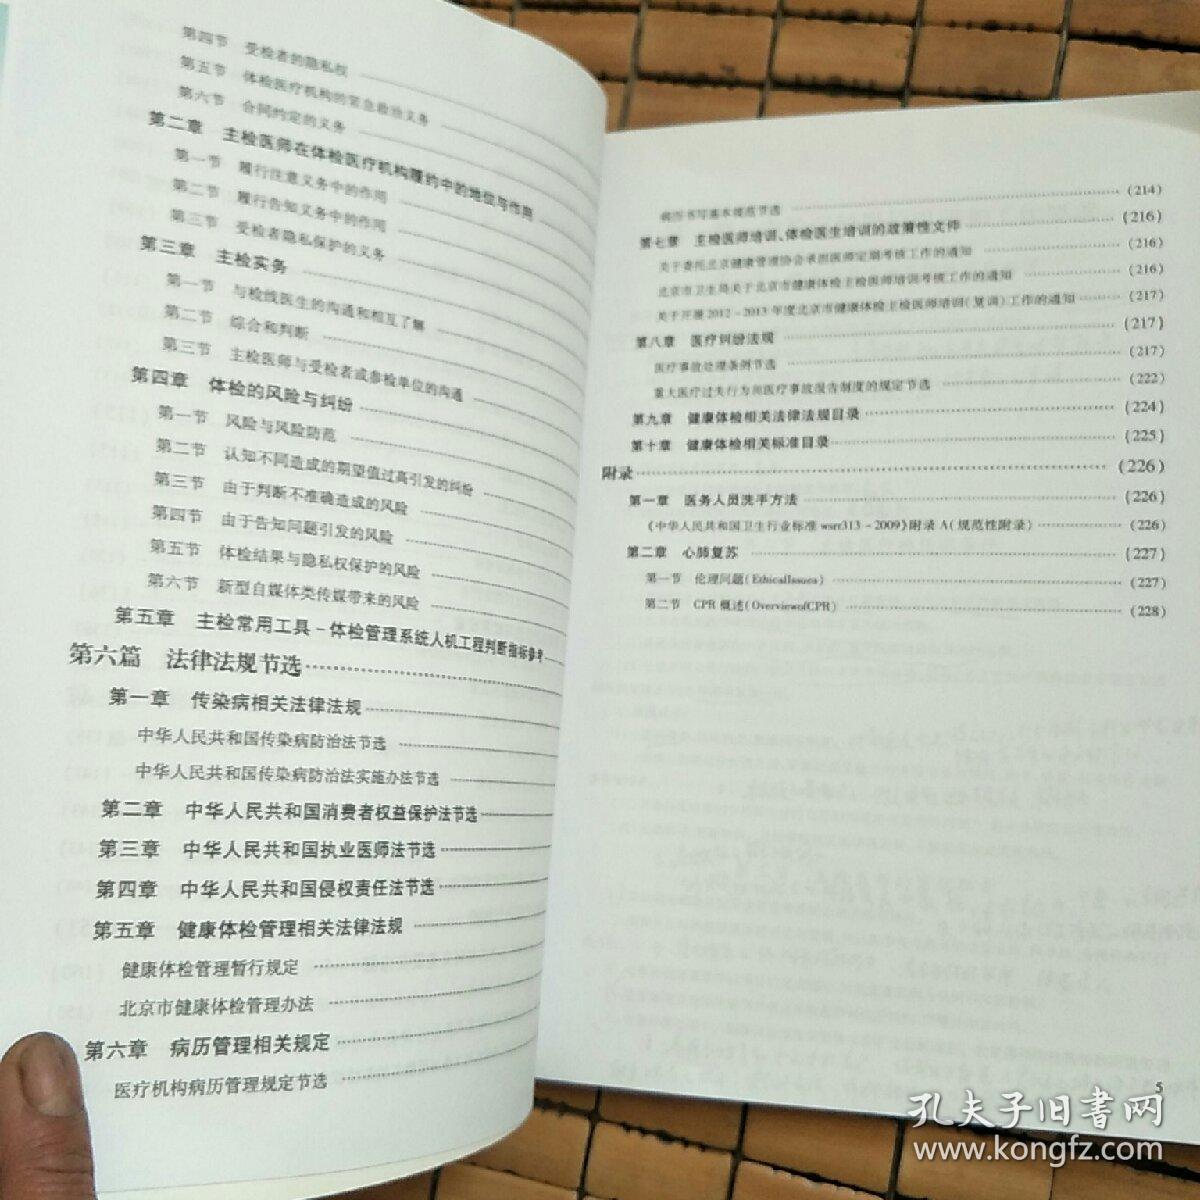 第四节 受检者的隐私权
第五节 体检医疗机构的紧急救治义务
第六节 合同约定的义务
第二章 主检医师在体检医疗机构履约中的地位与作用
第一节 履行注意义务中的作用
第二节 履行告知义务中的作用
第三节 受检者隐私保护的义务
第三章 主检实务
第一节 与检线医生的沟通和相互了解
第二节 综合和判断
第三节 主检医师与受检者或参检单位的沟通
第四章 体检的风险与纠纷
第一节 风险与风险防范
第二节 认知不同造成的期望值过高引发的纠纷
第三节 由于判断不准确造成的风险
第四节 由于告知问题引发的风险
第五节 体检结果与隐私权保护的风险
第六节 新型自媒体类传媒带来的风险
第五章 主检常用工具-体检管理系统人机工程判断指标参考
第六篇 法律法规节选
第一章 传染病相关法律法规
中华人民共和国传染病防治法节选
中华人民共和国传染病防治法实施办法节选
第二章 中华人民共和国消费者权益保护法节选
第三章 中华人民共和国执业医师法节选
第四章 中华人民共和国侵权责任法节选
第五章 健康体检管理相关法律法规
健康体检管理暂行规定
北京市健康体检管理办法
第六章 病历管理相关规定
医疗机构病历管理规定节选
病历书写基本规范节选 (214)
第七章 主检医师培训、体检医生培训的政策性文件 (216)
关于委托北京健康管理协会承担医师定期考核工作的通知 (216)
北京市卫生局关于北京市健康体检主检医师培训考核工作的通知 (216)
关于开展2012-2013年度北京市健康体检主检医师培训(复训)工作的通知 (217)
第八章 医疗纠纷法规 (217)
医疗事故处理条例节选 (217)
重大医疗过失行为和医疗事故报告制度的规定节选 (222)
第九章 健康体检相关法律法规目录 (224)
第十章 健康体检相关标准目录 (225)
附录 (226)
第一章 医务人员洗手方法 (226)
《中华人民共和国卫生行业标准wsrr313-2009》附录A(规范性附录) (226)
第二章 心肺复苏 (227)
第一节 伦理问题(EthicalIssues) (227)
第二节 CPR概述(OverviewofCPR) (228)
5
孔夫子旧书网
www.kongfz.com